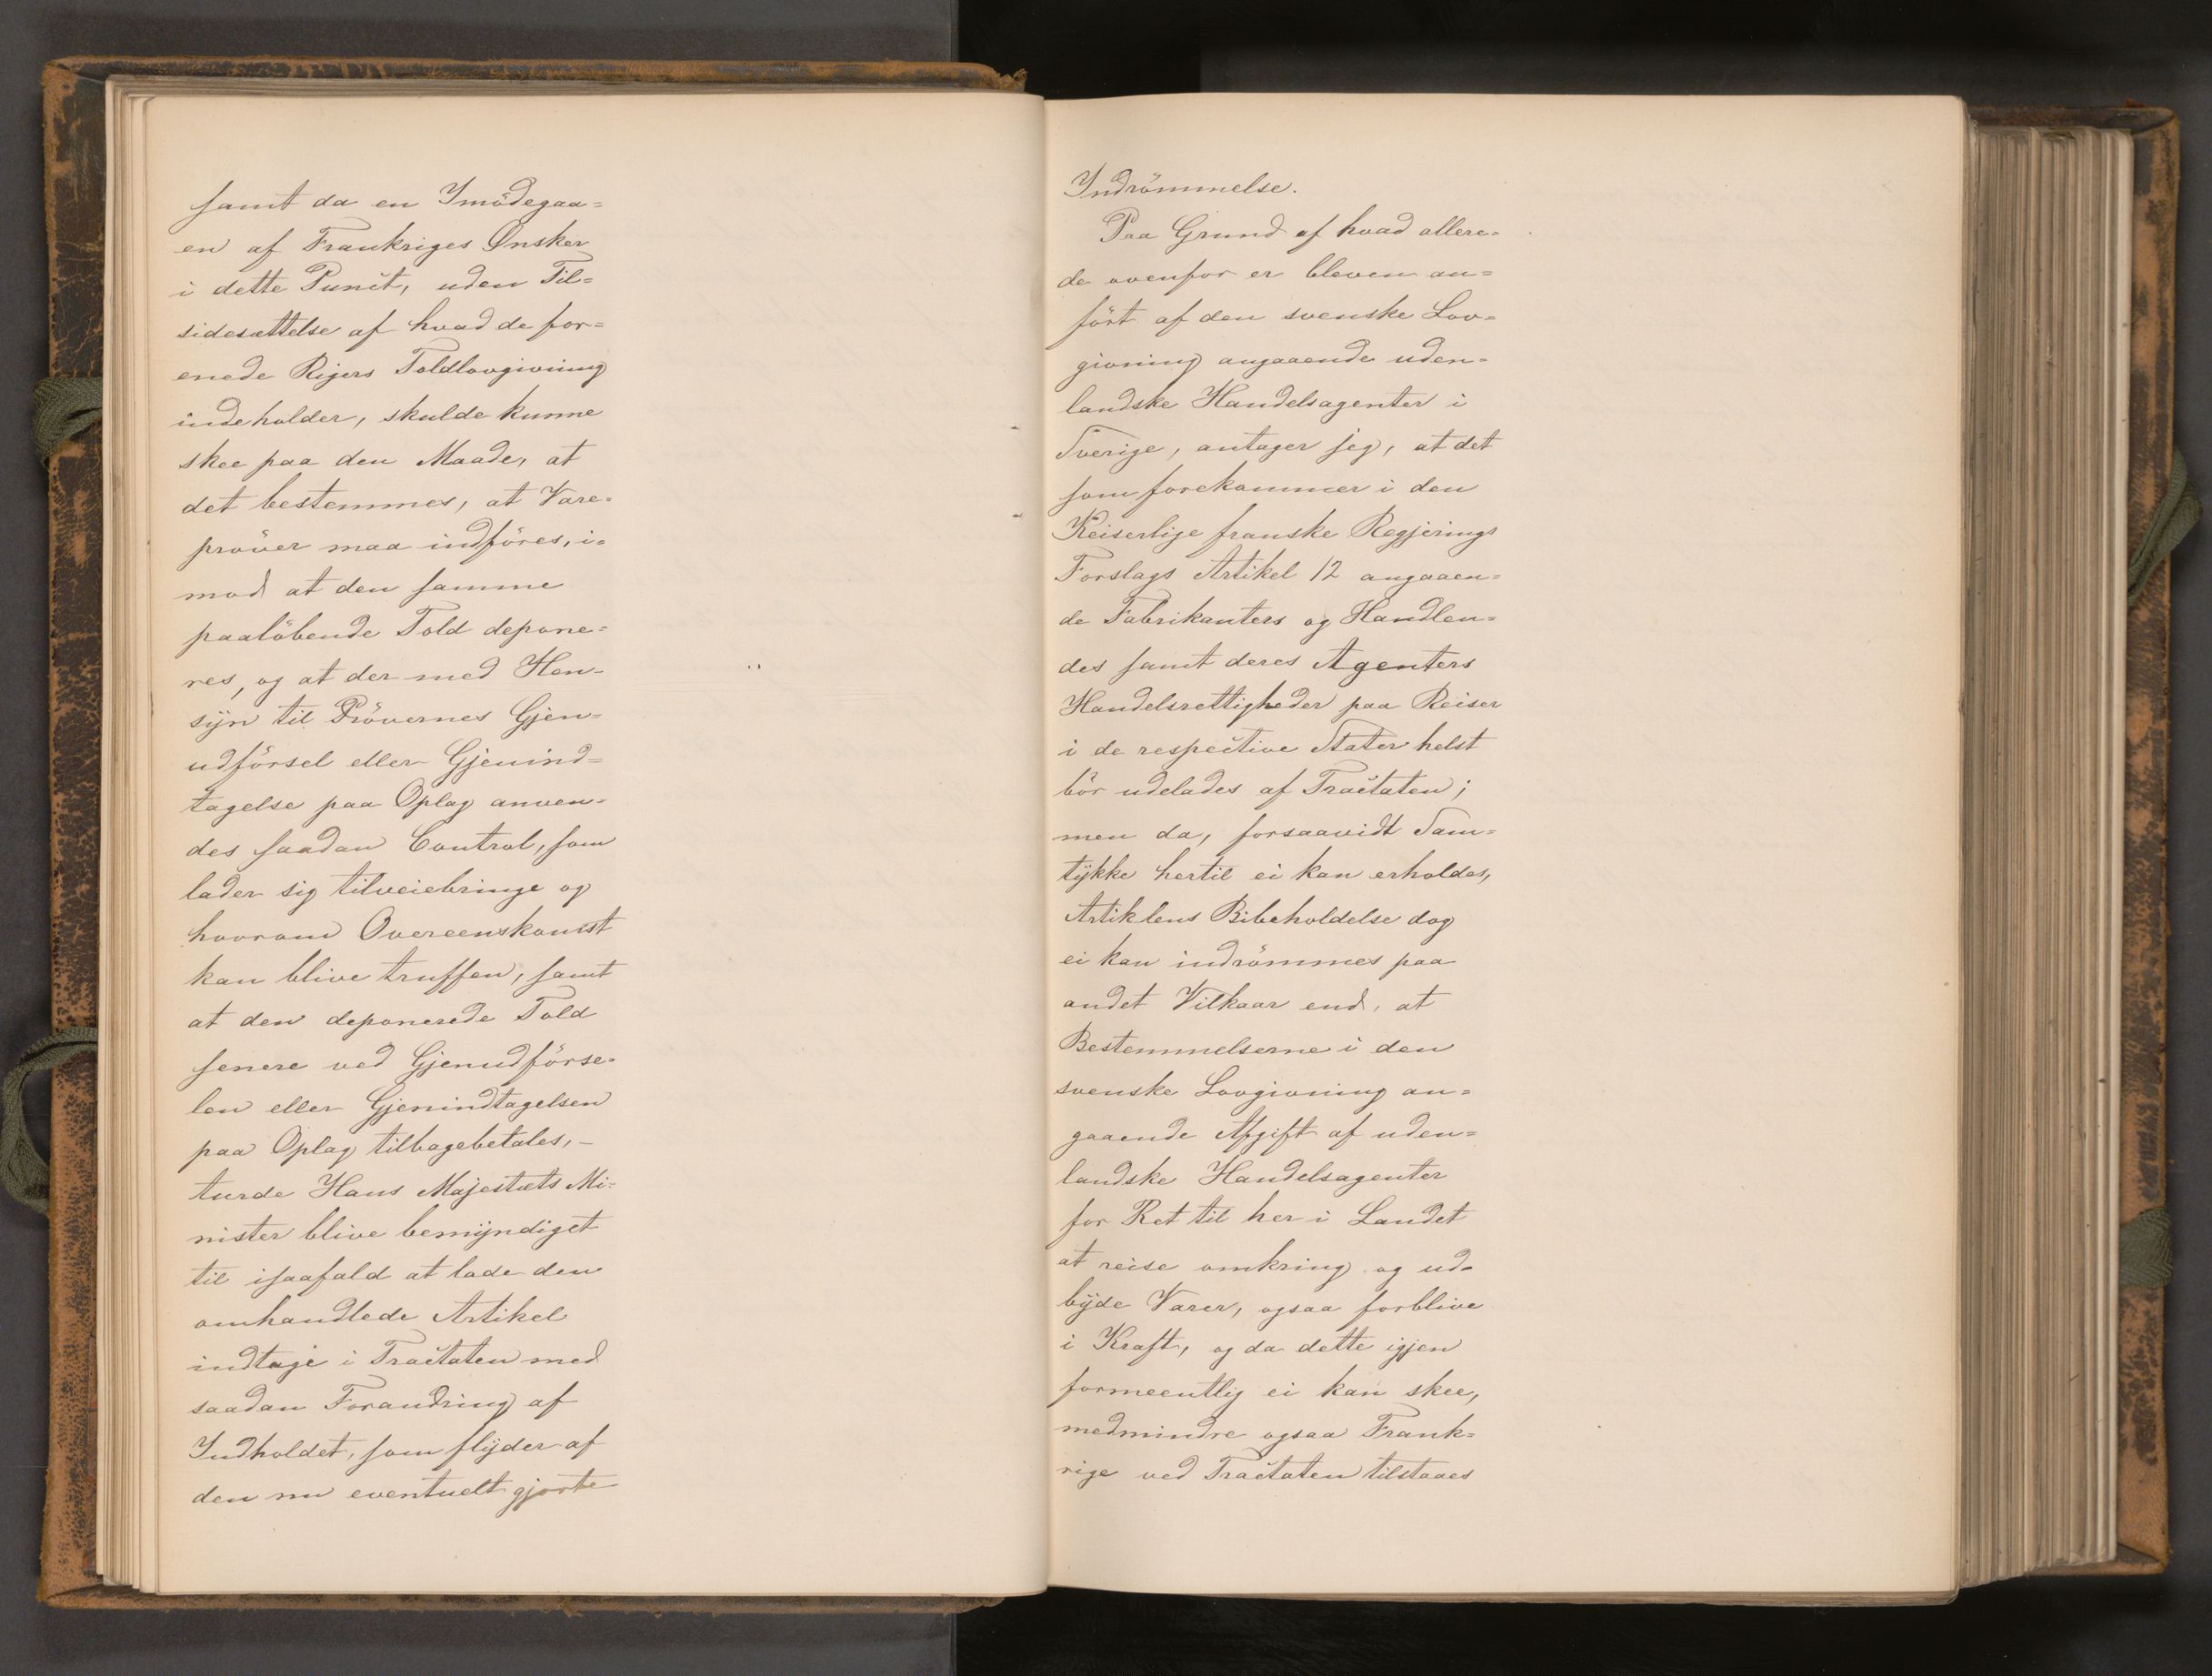 samt da en Imödegaa=
en af Frankriges Ønsker
i dette Punct, uden Til=
sidesættelse af hvad de for=
enede Rigers Toldlovgivning
indeholder, skulde kunne
skee paa den Maade, at
det bestemmes, at Vare=
pröver maa indföres, i=
mod at den samme
paalöbende Told depone=
res, og at der med Hen-
syn til Prövernes Gjen=
udförsel eller Gjenind=
tagelse paa Oplag anven=
des saadan Control, som
lader sig tilveiebringe og
hvorom Overeenskomst
kan blive truffen, samt
at den deponerede Told
senere ved Gjenudförse=
len eller Gjenindtagelsen
paa Oplag tilbagebetales, –
turde Hans Majestæts Mi=
nister blive bemyndiget
til isaafald at lade den
omhandlede Artikel
indtage i Tractaten med
saadan Forandring af
Indholdet, som flyder af
den nu eventuelt gjorte
Indrömmelse.
Paa Grund af hvad allere=
de ovenfor er bleven an=
fört af den svenske Lov=
givning angaaende uden=
landske Handelsagenter i
Sverige, antager jeg, at det
som forekommer i den
Keiserlige franske Regjerings
Forslags Artikel 12 angaaen=
de Fabrikanters og Handlen=
des samt deres Agenters
Handelsrettigheder paa Reiser
i de respective Stater helst
bör udelades af Tractaten;
men da, forsaavidt Sam=
tykke hertil ei kan erholdes,
Artiklens Bibeholdelse dog
ei kan indrömmes paa
andet Vilkaar end, at
Bestemmelserne i den
svenske Lovgivning an=
gaaende Afgift af uden=
landske Handelsagenter
for Ret til her i Landet
at reise omkring og ud=
byde Varer, ogsaa forblive
i Kraft, og da dette igjen
formeentlig ei kan skee,
medmindre ogsaa Frank=
rige ved Tractaten tilstaaes